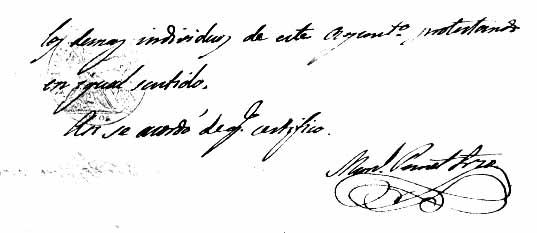 los demas individuos de este Ayunt.º protestando
en igual sentido.
Asi se acordó de q.e certifico.
Man.l